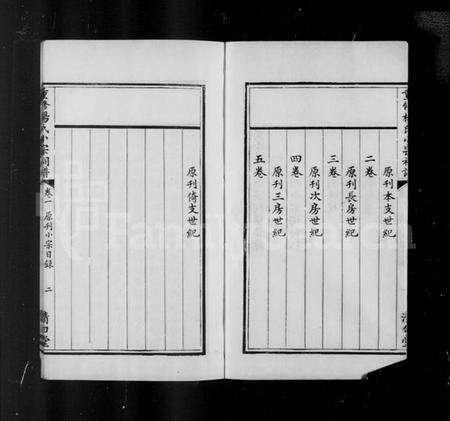 原刊本支世紀
二卷
原刊長房世紀
三卷
原刊次房世紀
四卷
原刊三房世紀
五卷
原刊倚支世紀
重修楊氏小宗祠譜
卷一 原刊小宗目錄
二
清白堂